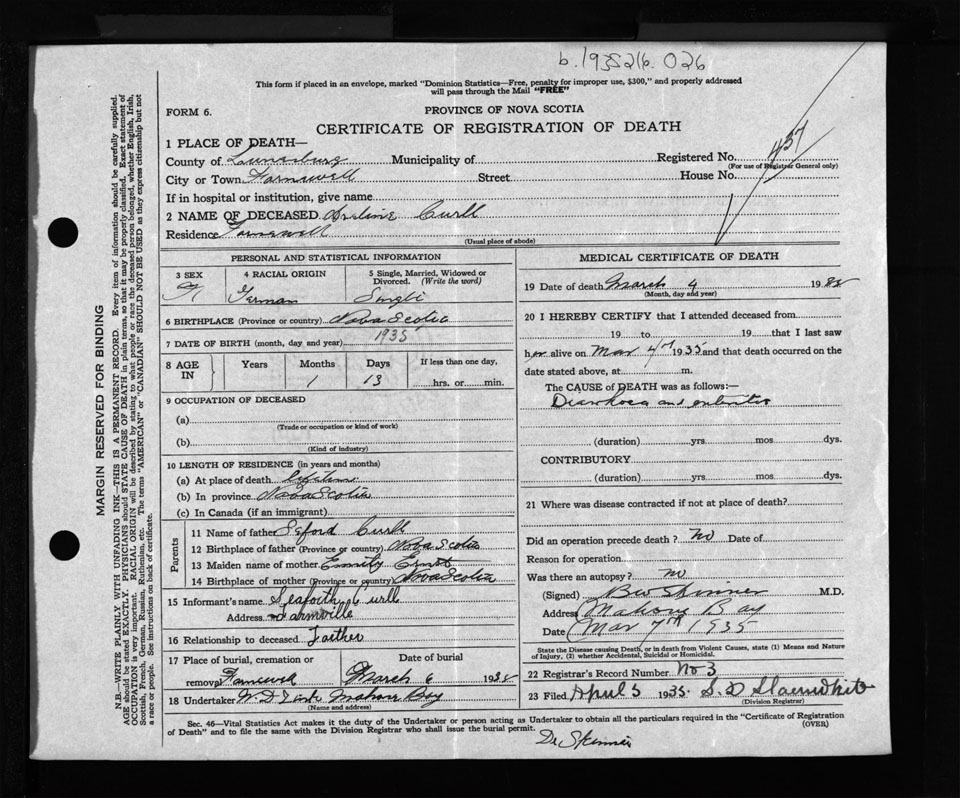 b.1935216.026
This form if placed in an envelope, marked "Dominion Statistics—Free, penalty for improper use, $300," and properly addressed
will pass through the Mail "FREE"
FORM 6.
PROVINCE OF NOVA SCOTIA
CERTIFICATE OF REGISTRATION OF DEATH
437
1 PLACE OF DEATH—
County of Lunenburg Municipality of Registered No.
(For use of Registrar General only)
City or Town Street House No.
If in hospital or institution, give name
2 NAME OF DECEASED Curll
Residence
(Usual place of abode)
PERSONAL AND STATISTICAL INFORMATION
3 SEX
4 RACIAL ORIGIN German
5 Single, Married, Widowed or
Divorced. (Write the word)
Single
6 BIRTHPLACE (Province or country) Nova Scotia
7 DATE OF BIRTH (month, day and year) 1935
8 AGE IN Years Months 1 Days 13
If less than one day,
hrs. or min.
9 OCCUPATION OF DECEASED
(a)
(Trade or occupation or kind of work)
(b)
(Kind of industry)
10 LENGTH OF RESIDENCE (in years and months)
(a) At place of death
(b) In province Nova Scotia
(c) In Canada (if an immigrant)
Parents
11 Name of father Curll
12 Birthplace of father (Province or country) Nova Scotia
13 Maiden name of mother Emily Ernst
14 Birthplace of mother (Province or country) Nova Scotia
15 Informant's name Seaforth Curll
Address Farmville
16 Relationship to deceased Faither
17 Place of burial, cremation or
removal
Date of burial
March 6 1935
18 Undertaker Mahone Bay
(Name and address)
MEDICAL CERTIFICATE OF DEATH
19 Date of death March 4 1935
(Month, day and year)
20 I HEREBY CERTIFY that I attended deceased from
19 to 19 that I last saw
her alive on Mar 4th 1935 and that death occurred on the
date stated above, at m.
The CAUSE of DEATH was as follows:—
Diarrhoea and enteritis
(duration) yrs. mos. dys.
CONTRIBUTORY
(duration) yrs. mos. dys.
21 Where was disease contracted if not at place of death?
Did an operation precede death? No Date of
Reason for operation
Was there an autopsy? no
(Signed) Skinner M.D.
Address Mahone Bay
Date Mar 7th 1935
State the Disease causing Death, or in death from Violent Causes, state (1) Means and Nature
of Injury, (2) whether Accidental, Suicidal or Homicidal.
22 Registrar's Record Number No 3
23 Filed April 5 1935
(Division Registrar)
Sec. 46—Vital Statistics Act makes it the duty of the Undertaker or person acting as Undertaker to obtain all the particulars required in the "Certificate of Registration
of Death" and to file the same with the Division Registrar who shall issue the burial permit.
(OVER)
Dr Skinner
MARGIN RESERVED FOR BINDING
N.B.—WRITE PLAINLY WITH UNFADING INK—THIS IS A PERMANENT RECORD. Every item of information should be carefully supplied.
AGE should be stated EXACTLY. PHYSICIANS should STATE CAUSE OF DEATH in plain terms, so that it may be properly classified. Exact statement of
OCCUPATION is very important. RACIAL ORIGIN will be described by stating to what people or race the deceased person belonged, whether English, Irish,
Scottish, French, German, Russian, Ruthenian, etc. The terms "AMERICAN" or "CANADIAN" SHOULD NOT BE USED as they express citizenship but not
a race or people. See instructions on back of certificate.